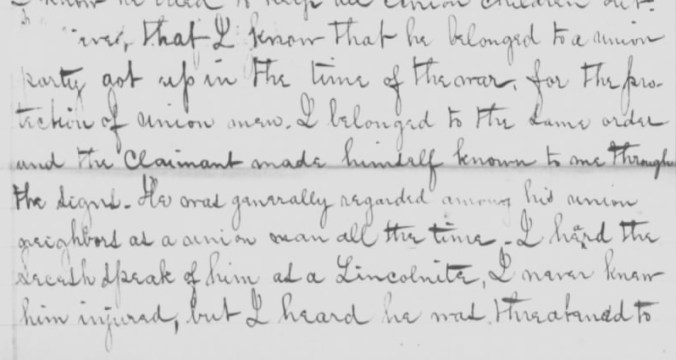 I know he used to keep all Union children out.
ives, that I know that he belonged to a union
party got up in the time of the war, for the pro-
tection of union men. I belonged to the same order
and the Claimant made himself known to me through
the signs. He was generally regarded among his union
neighbors as a union man all the time. I heard the
secesh speak of him as a Lincolnite, I never knew
him injured, but I heard he was threatened to